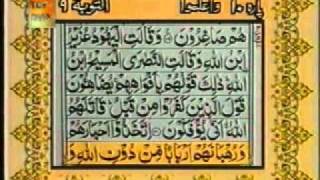 پاره ۱۰ واعلموا التوبة ۹
هُمْ صَاغِرُوْنَ وَقَالَتِ الْيَهُوْدُ عُزَيْرُ
ابْنُ اللهِ وَقَالَتِ النَّصٰرَى الْمَسِيْحُ ابْنُ
اللهِ ذٰلِكَ قَوْلُهُمْ بِاَفْوَاهِهِمْ يُضَاهِئُوْنَ
قَوْلَ الَّذِيْنَ كَفَرُوْا مِنْ قَبْلُ قَاتَلَهُمُ
اللهُ اَنّٰى يُؤْفَكُوْنَ اِتَّخَذُوْا اَحْبَارَهُمْ
وَرُهْبَانَهُمْ اَرْبَابًا مِّنْ دُوْنِ اللهِ وَا